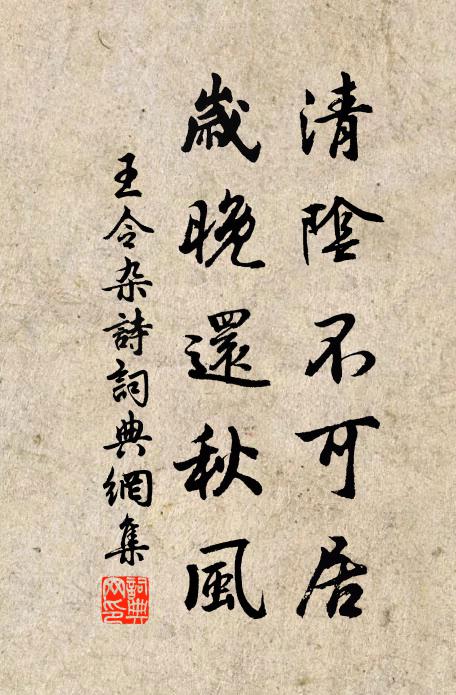 清陰不可居
歲晚還秋風
王令杂詩詞典網集
詞典
网印